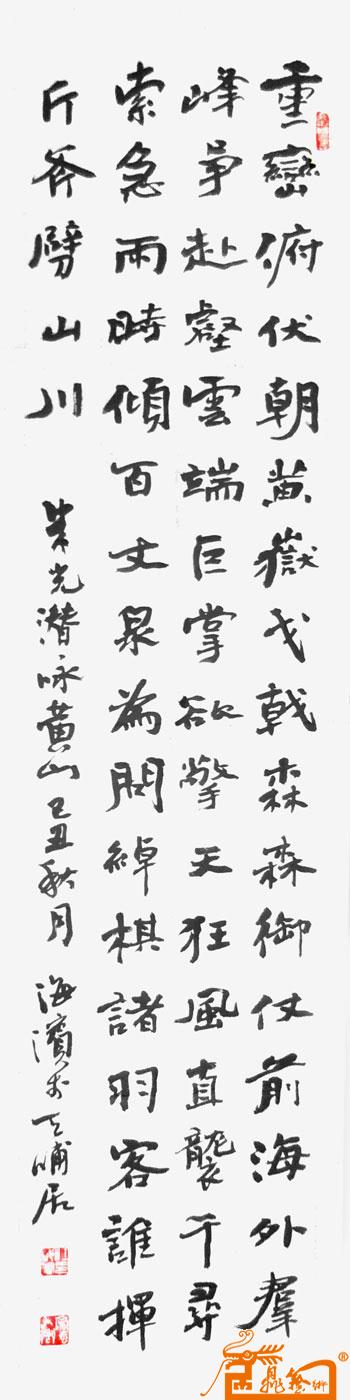 重巒俯伏朝黄嶽戈戟森森御仗前海外羣
峰爭赴壑雲端巨掌欲擎天狂風直襲千尋
索急雨時傾百丈泉為問綽棋諸羽客誰揮
斤斧劈山川
朱光潜咏黄山己丑秋月
海濱於天晡居